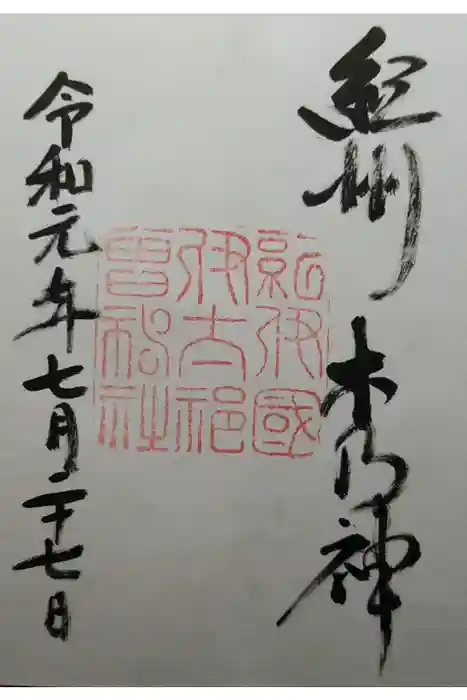 紀州
木乃神
紀伊國
伊太祁
曽神社
令和元年七月二十七日